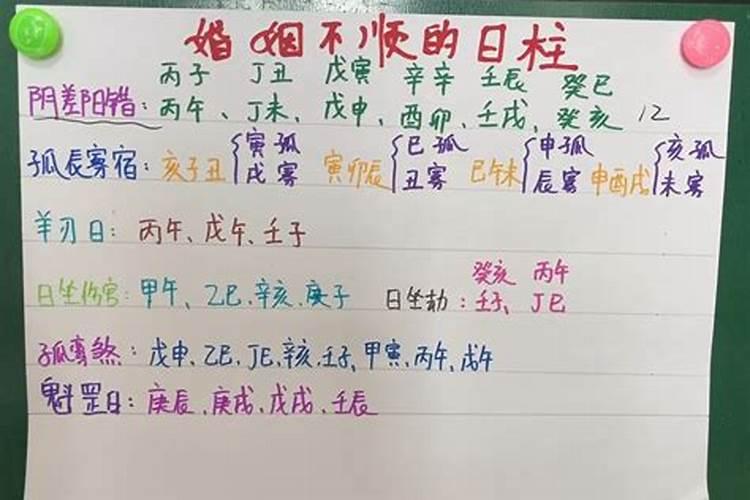 婚姻不顺的日柱
丙子 丁丑 戊寅 辛辛 壬辰 癸巳
阴差阳错：丙午、丁未、戊申、酉卯、壬戌、癸亥 12
孤辰寡宿：亥子丑 {寅孤 戌寡 寅卯辰 {巳孤 丑寡 巳午未 {申孤 辰寡 申酉戌 {亥孤 未寡
羊刃日：丙午、戊午、壬子
癸亥 丙午
日坐伤官：甲午、乙巳、辛亥、庚子 日坐劫：壬子、丁巳
孤鸾煞：戊申、乙巳、丁巳、辛亥、壬子、甲寅、丙午、戊午
魁罡日：庚辰、庚戌、戊戌、壬辰